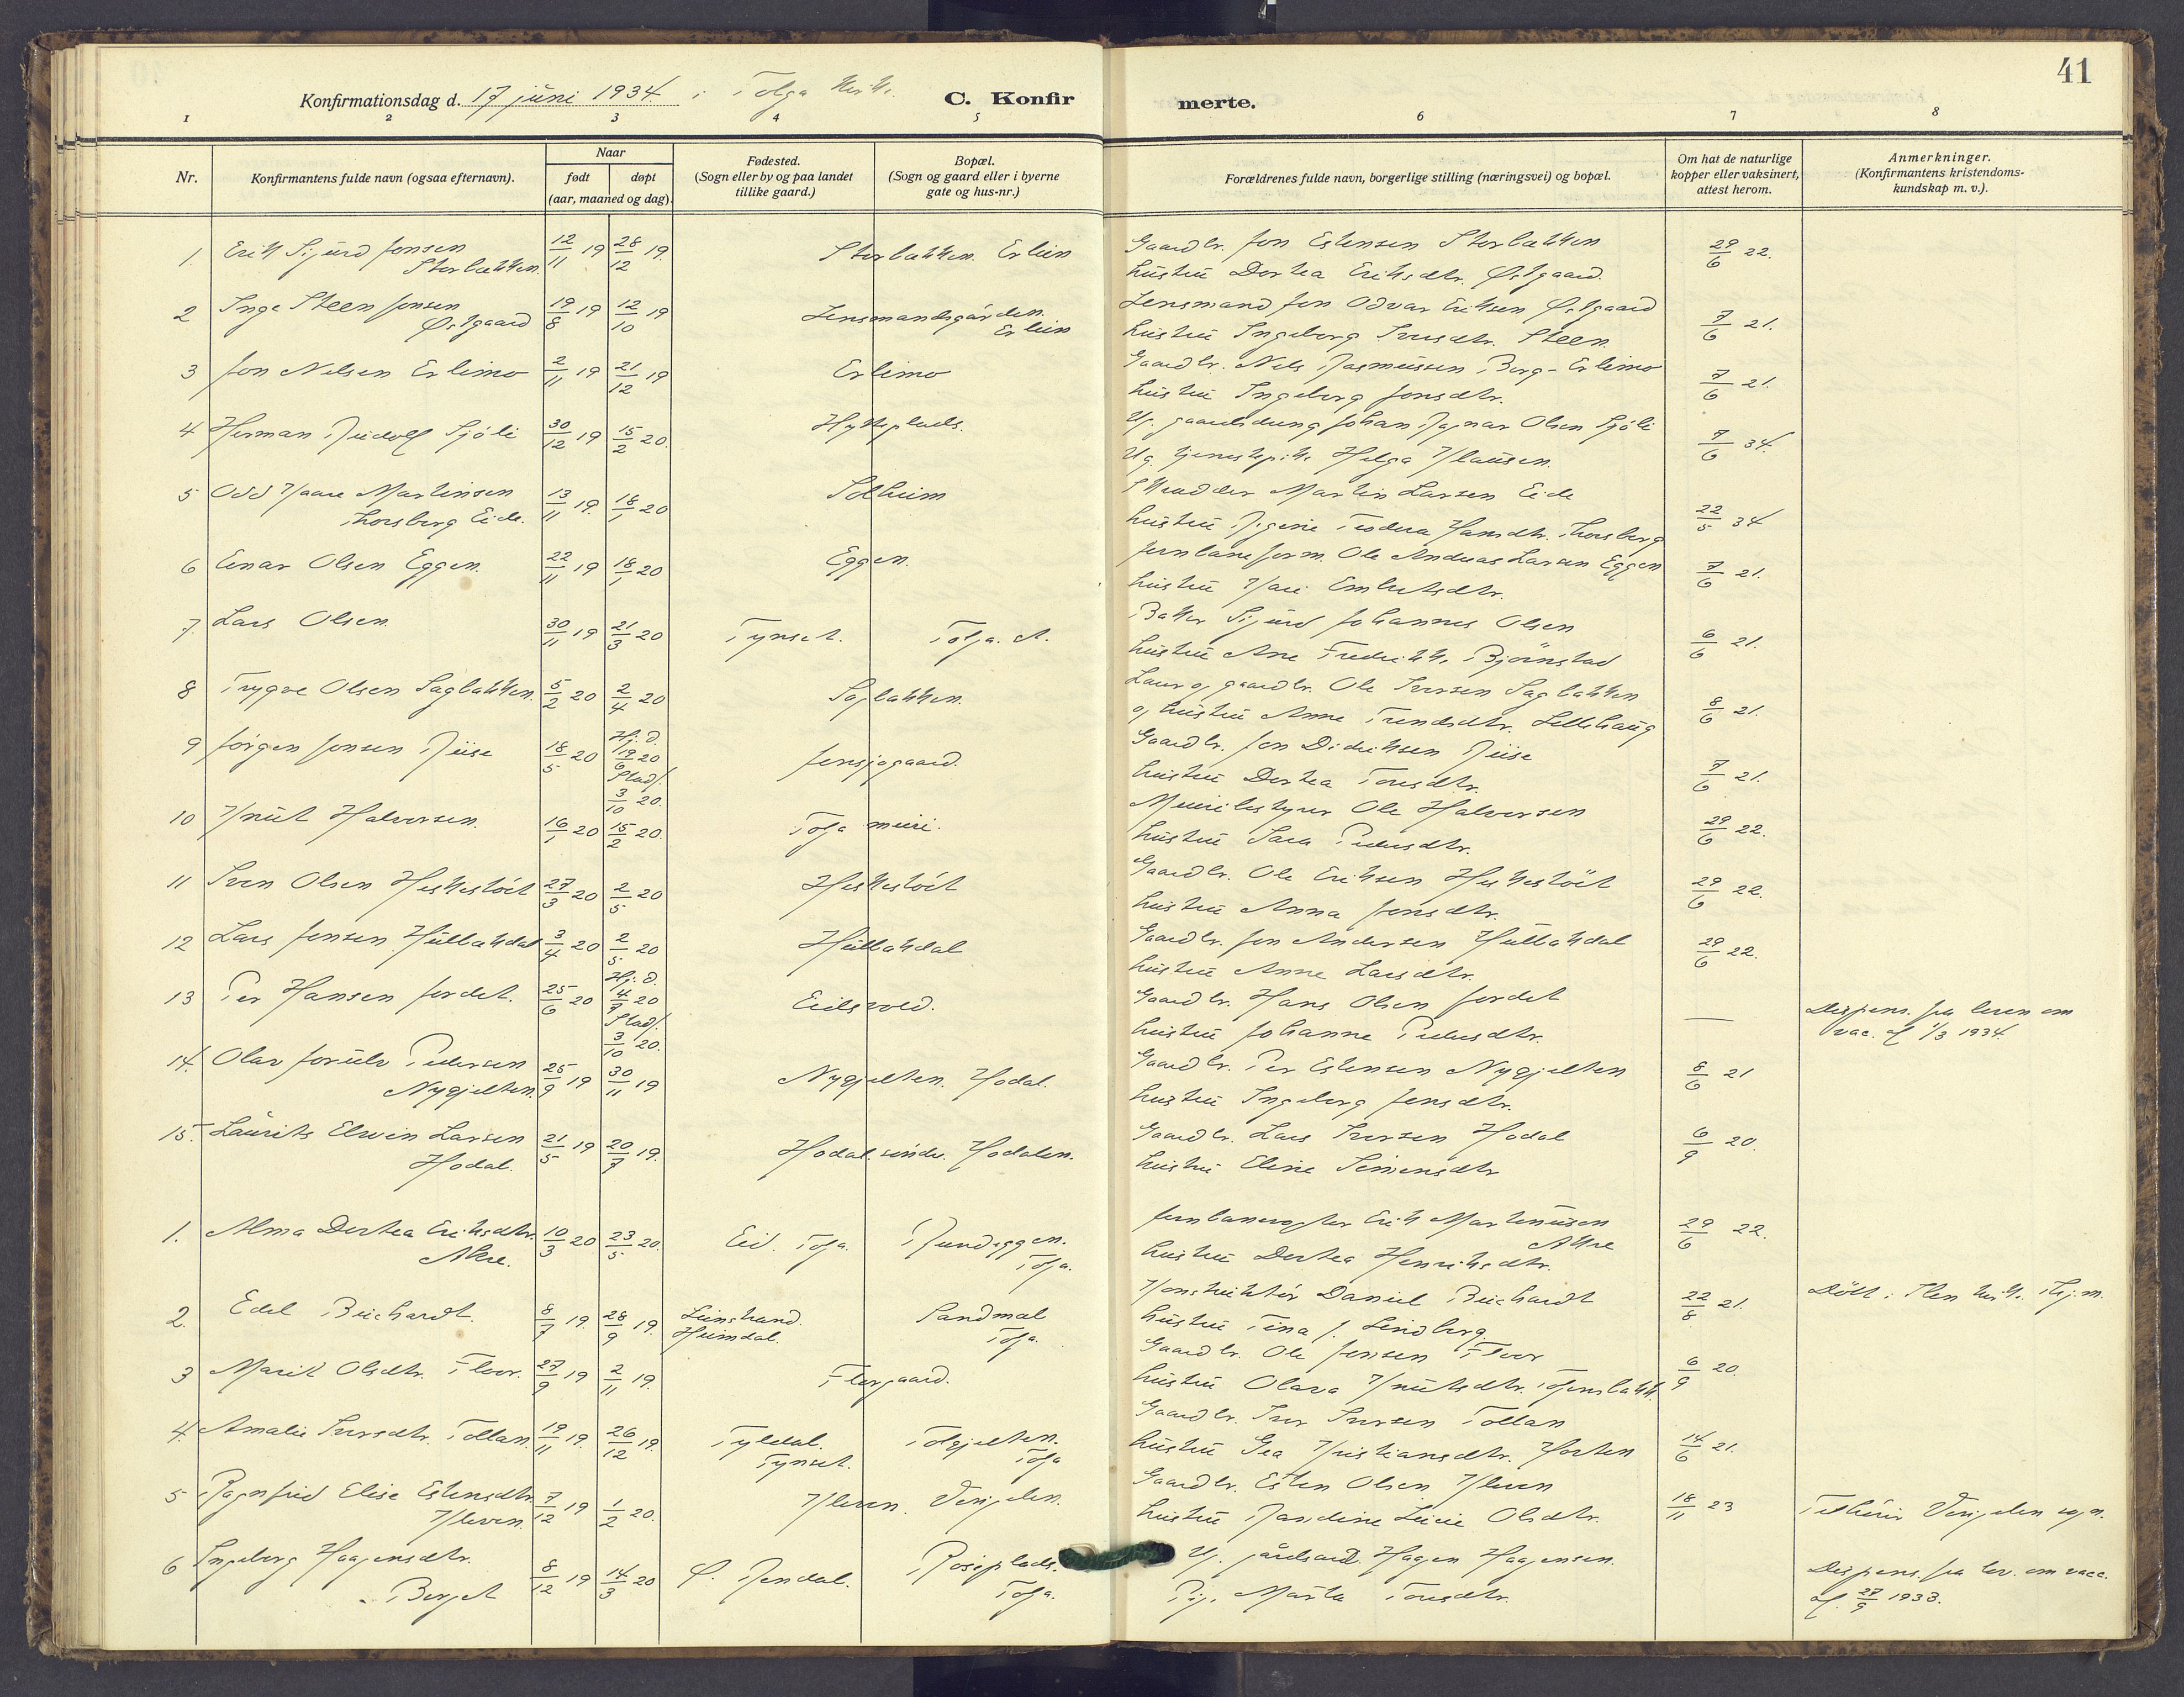 41
Konfirmationsdag d. 17 juni 1934. i Tolga
C. Konfirmerte.
1 2 3 4 5 6 7 8
Nr.
Konfirmantens fulde navn (ogsaa efternavn).
Naar
født døpt
(aar, maaned og dag).
Fødested.
(Sogn eller by og paa landet
tillike gaard.)
Bopæl.
(Sogn og gaard eller i byerne
gate og hus-nr.)
Forældrenes fulde navn, borgerlige stilling (næringsvei) og bopæl.
Om hat de naturlige
kopper eller vaksinert,
attest herom.
Anmerkninger.
(Konfirmantens kristendoms-
kundskap m. v.).
1. Erik Sigurd Jonsen Storbakken. 12/11 19 28/12 19. Storbakken. Erlien
Gaardbr. Jon Estensen Storbakken
hustru Dortea Eriksdtr. Østgaard. 29/6 22.
2 Inge Steen Jonsen Østgaard 19/8 19 12/10 19 Lensmandsgården. Erlien
Lensmand Jon Odvar Eriksen Østgaard
hustru Ingeborg Iversdtr. Steen. 7/6 21.
3 Jon Nilsen Erlimo 2/11 19 21/12 19 Erlimo
Gaardbr. Nils Rasmussen Berg-Erlimo
hustru Ingeborg Jonsdtr. 7/6 21.
4 Herman Rudolf Sjöli 30/12 19 15/2 20. Hytteplads.
Johan Ragnar Olsen Sjöli
Ug. Helga Klausen. 7/6 34.
5 Odd Kaare Martinsen Thorsberg Eide. 13/11 19. 18/1 20 Solheim
Skrædder Martin Larsen Eide
hustru Teodora Hansdtr. Thorsberg 22/5 34
6 Einar Olsen Eggen. 22/11 19 18/1 20 Eggen.
Jernbaneform. Ole Andreas Larsen Eggen
hustru Kari Embretsdtr. 7/6 21.
7. Lars Olsen. 30/11 19 21/3 20 Tynset. Tolga. st.
Baker Sigurd Johannes Olsen
hustru Ane Fredrikke Björnstad 6/6 21.
8 Trygve Olsen Sagbakken. 5/2 20 2/4 20 Sagbakken.
gaardbr. Ole Iversen Sagbakken
og hustru Anne Trondsdtr. Lillehaug 8/6 21.
9 Jörgen Jonsen Riise 18/5 20 Hj. d. 19/6 20 Stadf. 3/10 20. Jensjogaard.
Gaardbr. Jon Didriksen Riise
hustru Dortea Toresdtr. 7/6 21.
10 Knut Halvorsen. 16/1 20 15/2 20. Tolga meieri.
Meieribestyrer Ole Halvorsen
hustru Sara Pedersdtr. 29/6 22.
11 Sven Olsen Heskestöit 27/3 20 2/5 20 Heskestöit
Gaardbr. Ole Eriksen Heskestöit
hustru Anna Jonsdtr. 29/6 22.
12 Lars Jonsen Hullahdal 3/4 20 2/5 20 Hullahdal
Gaardbr. Jon Andersen Hullahdal
hustru Anne Larsdtr. 29/6 22.
13 Per Hansen Jordet. 25/6 20 Hj. d. 4/7 20 Stadf. 3/10 20. Eidsvold.
Gaardbr. Hans Olsen Jordet
hustru Johanne Pedersdtr. —
Dispens. fra loven om vac. af 1/3 1934.
14. Olav Jorulv Pedersen Nygjelten. 25/9 19 30/11 19 Nygjelten. Hodal.
Gaardbr. Per Estensen Nygjelten
hustru Ingeborg Jensdtr. 8/6 21
15. Laurits Elwin Larsen Hodal. 21/5 19 20/7 19. Hodal søndr. Hodalen.
Gaardbr. Lars Iversen Hodal
hustru Eline Simensdtr 6/9 20.
1. Alma Dortea Eriksdtr. Akre. 10/3 20 23/5 20. Eid. Tolga. Rundeggen. Tolga.
Jernbanevogter Erik Martinusen Akre
hustru Dortea Henriksdtr. 29/6 22.
2. Edel Buchardt. 8/7 19. 28/9 19. Leinstrand. Heimdal. Sandmal Tolga.
Konstruktör Daniel Buchardt
hustru Tina J. Lindberg. 22/8 21.
Döbt i Ilen kirke Thj.m.
3 Marit Olsdtr. Floor. 27/9 19 2/11 19. Florgaard.
Gaardbr. Ole Jonsen Floor
hustru Olava Knutsdtr. 6/9 20.
4. Amalie Iversdtr. Tollan. 19/11 19. 26/12 19. Tyldal. Tynset. Tolgjelten. Tolga
Gaardbr. Iver Iversen Tollan
hustru Gea Kristiansdtr. Horten 14/6 21.
5 Ragnfrid Elise Estensdtr. Kleven. 7/12 19 1/2 20. Kleven. Vingelen.
Gaardbr. Esten Olsen Kleven
hustru Randine Lucie Olsdtr. 18/11 23
Tilhörer Vingelen sogn.
6 Ingeborg Haagensdtr. Berget 8/12 19 14/3 20 Ø. Rendal. Roseplads. Tolga.
Ug. Hagen Haagensen.
Pig. Marta Toresdtr.
Dispens. fra lov. om vacc. af. 27/9 1933.